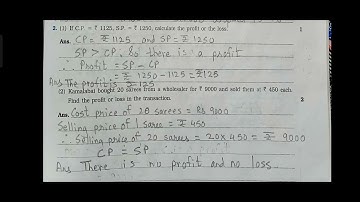 2. (1) If C.P. = ₹ 1125, S.P. = ₹ 1250, calculate the profit or the loss. 1
Ans. CP = ₹ 1125 and SP = ₹ 1250
SP > CP. So there is a profit
∴ Profit = SP - CP
= ₹ 1250 - 1125 = ₹125
Ans The profit is ₹ 125
(2) Kamalabai bought 20 sarees from a wholesaler for ₹ 9000 and sold them at ₹ 450 each.
Find the profit or loss in the transaction. 2
Ans. Cost price of 20 sarees = Rs 9000
Selling price of 1 saree = ₹ 450
∴ Selling price of 20 sarees = 20 x 450 = ₹ 9000
CP = SP
Ans There is no profit and no loss